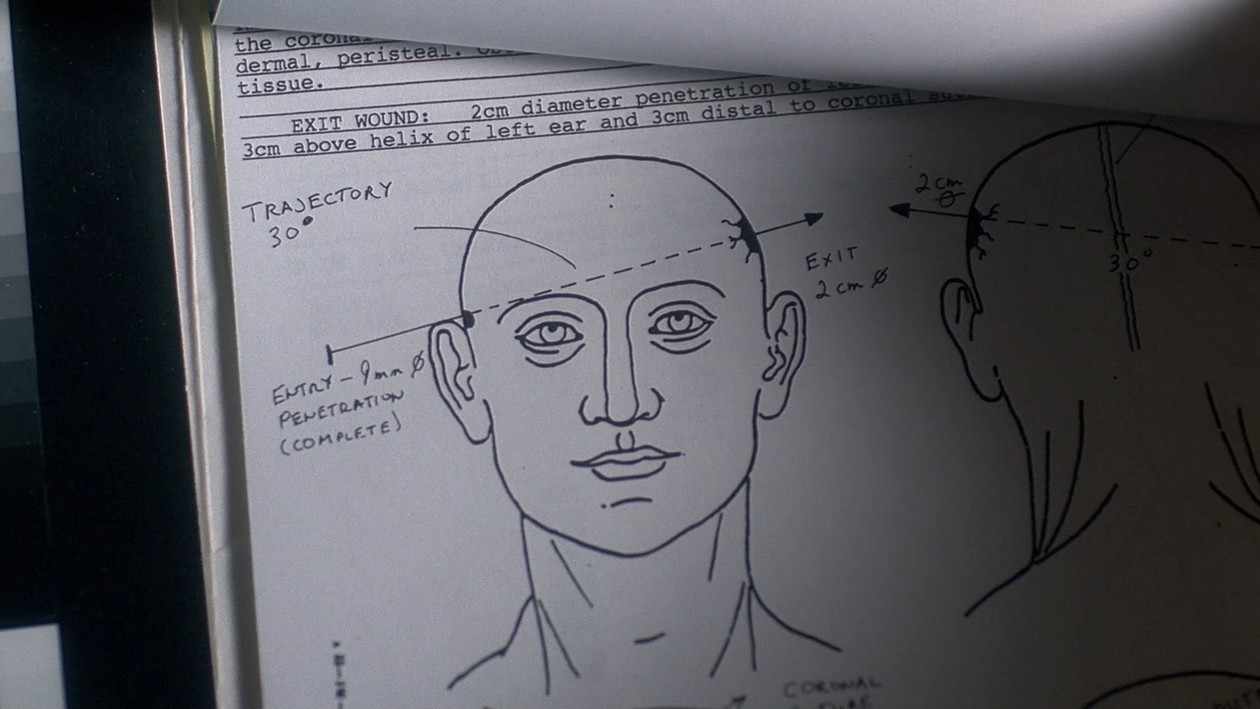 the coronal
dermal, peristeal.
tissue.
EXIT WOUND: 2cm diameter penetration of
3cm above helix of left ear and 3cm distal to coronal
TRAJECTORY
30°
2cm
ø
E
30°
EXIT
2cm ø
ENTRY - 9mm ø
PENETRATION
(COMPLETE)
CORONAL